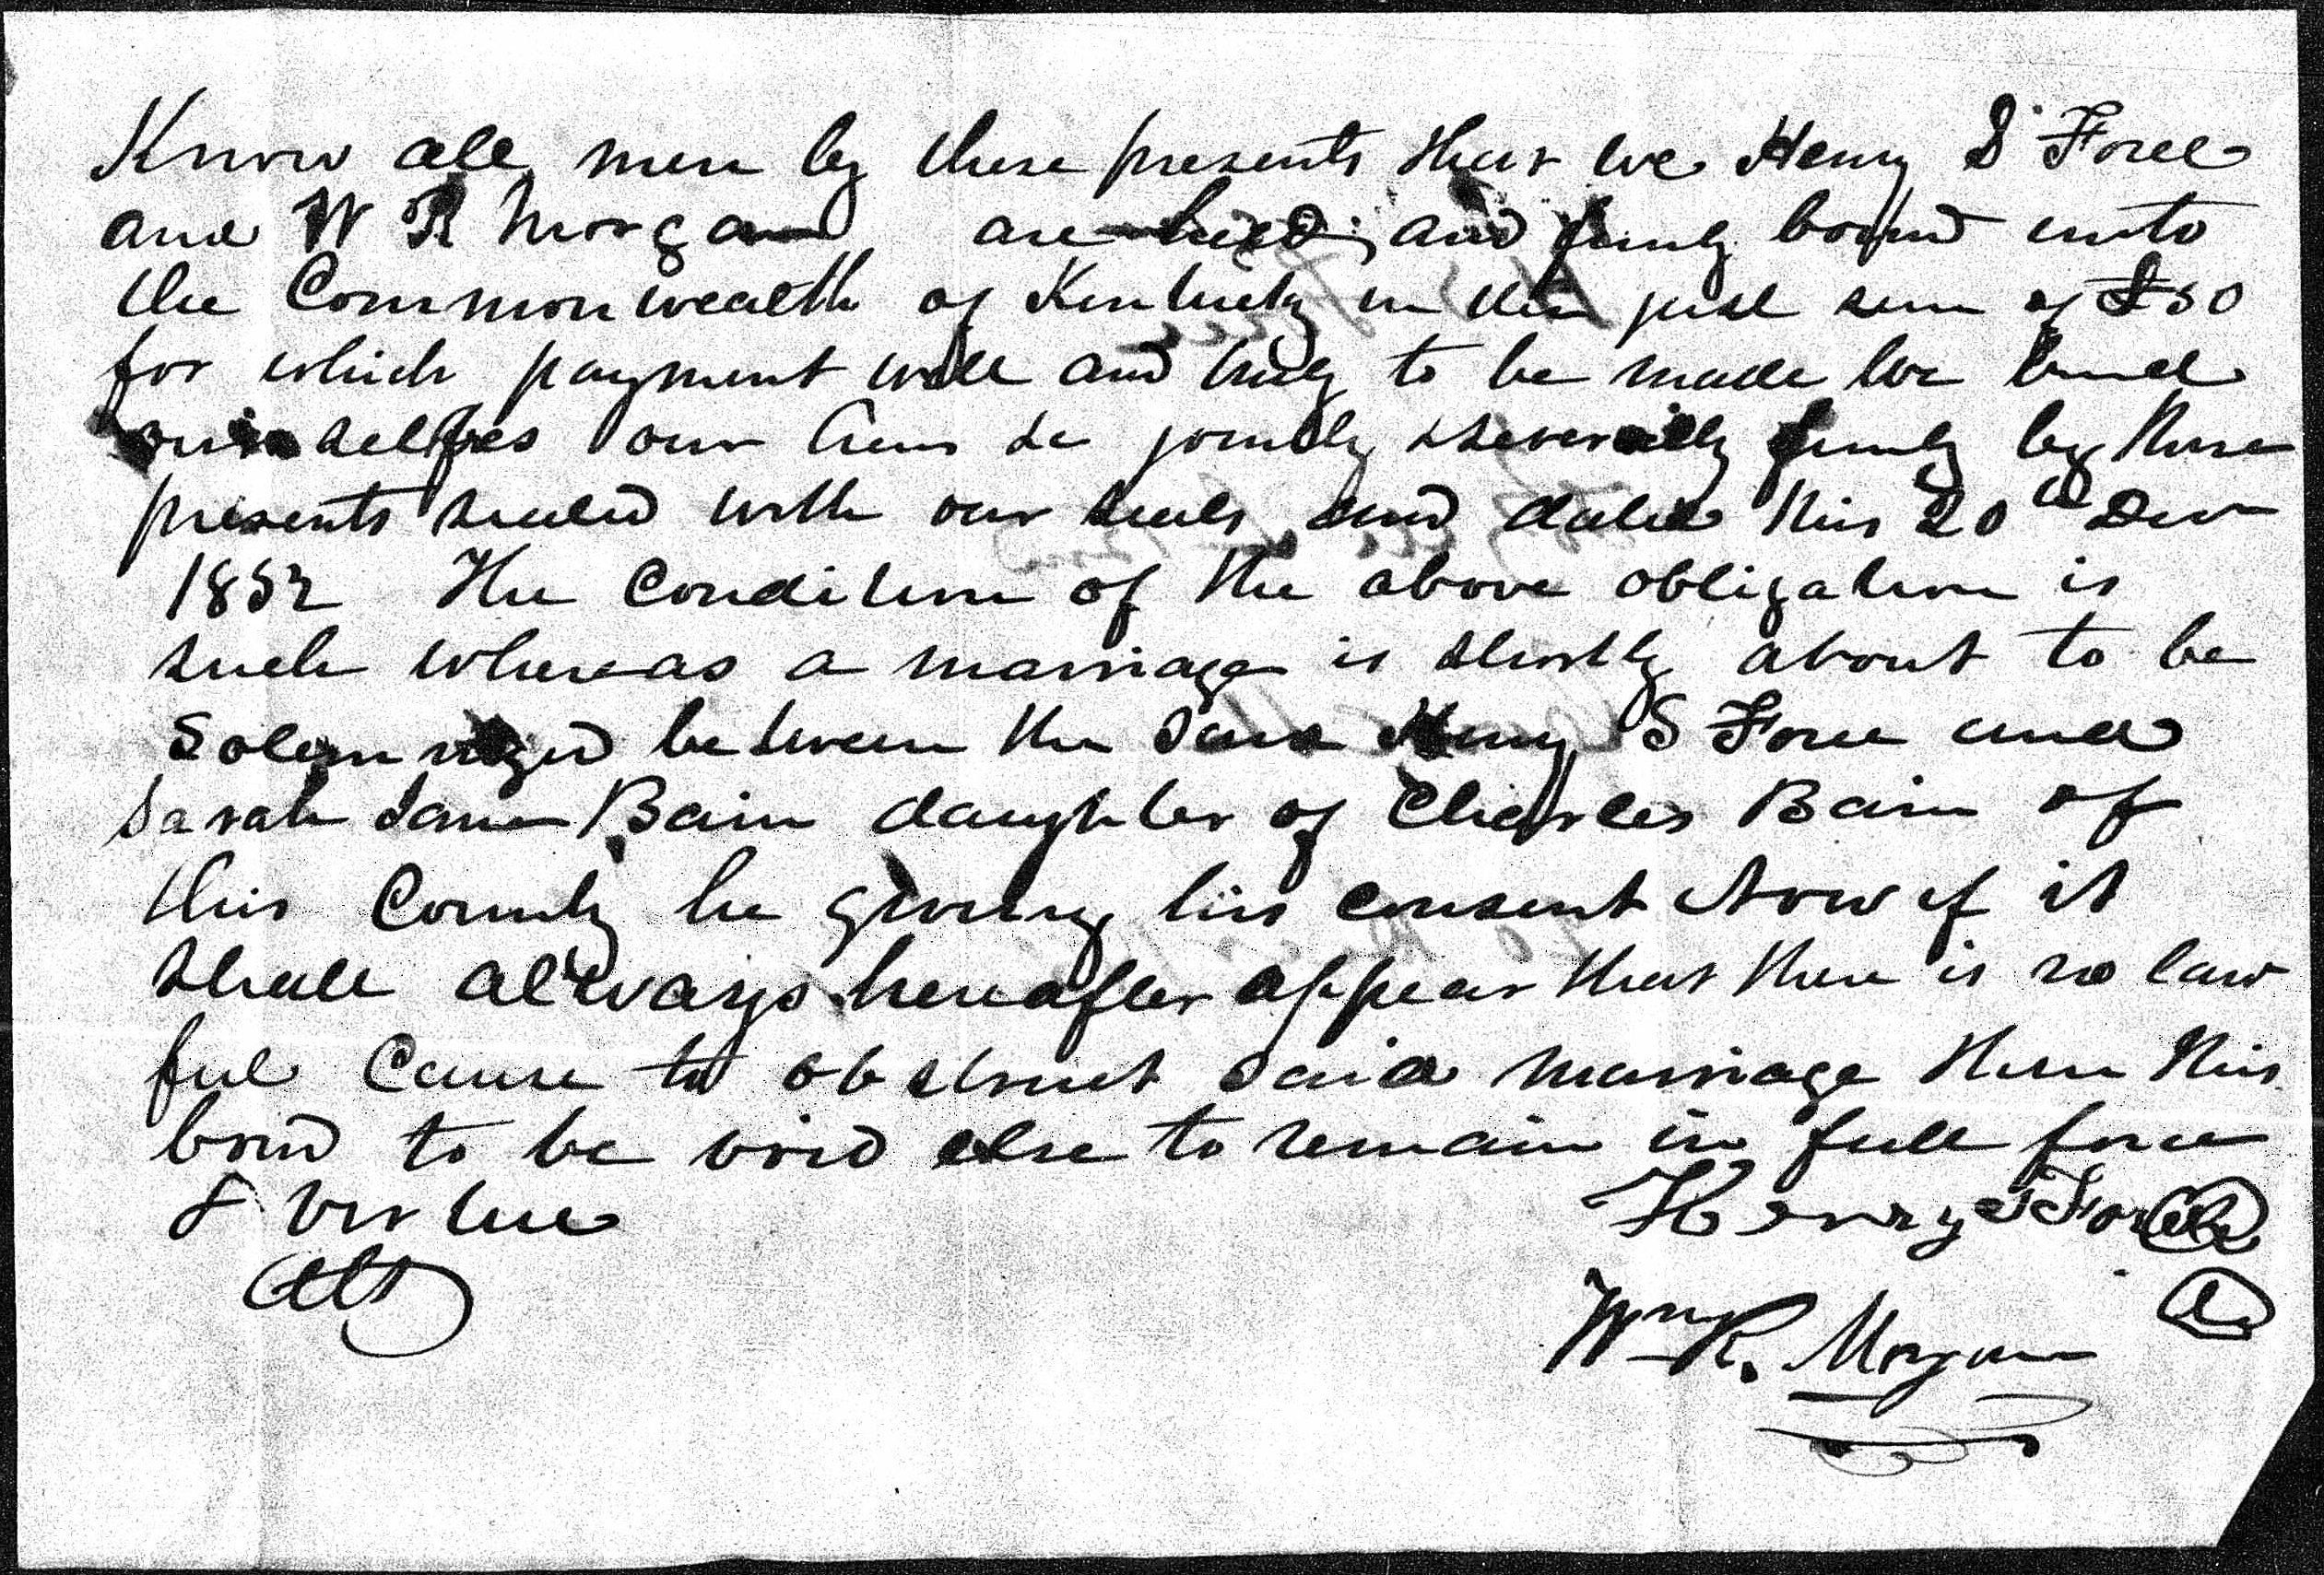 Know all men by these presents that we Henry S Force
and W R Morgan are held and firmly bound unto
the Commonwealth of Kentucky in the just sum of £50
for which payment well and truly to be made we bind
our selfves our heirs &c jointly & severally firmly by these
presents sealed with our seals and dated this 20th Decr
1852 The Condition of the above obligation is
such whereas a marriage is shortly about to be
Solemnized between the said Henry S Force and
Sarah Jane Bain daughter of Charles Bain of
this County he giving his consent Now if it
shall always hereafter appear that there is no law
ful Cause to obstruct said marriage then this
bond to be void else to remain in full force
& virtue
Henry S Force
Att
Wm R. Morgan